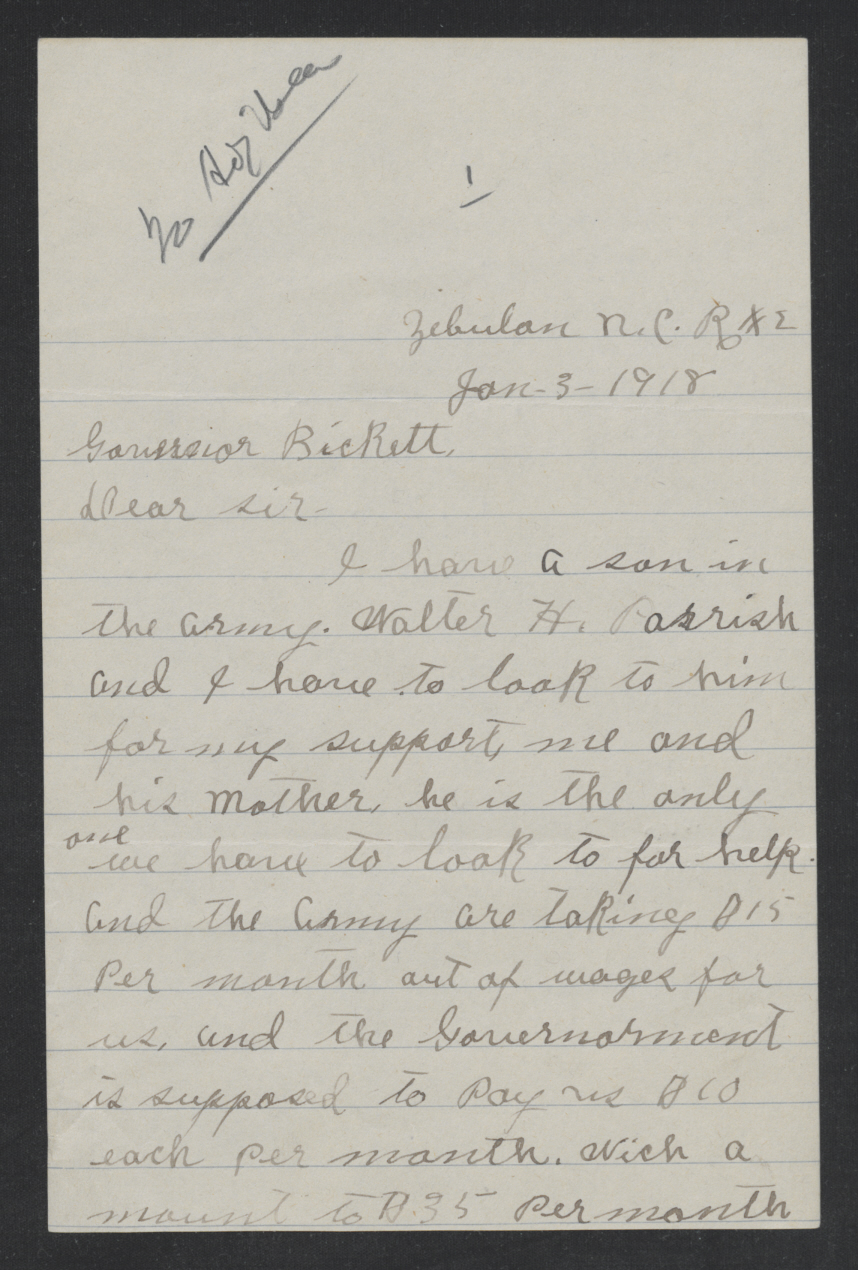 To
1
Zebulon N.C. R #2
Jan-3-1918
Governior Bickett,
Dear sir-
I have a son in
the army. Walter H. Parrish
and I have to look to him
for my support, me and
his mother, he is the only
one
we have to look to for help.
and the army are taking $15
Per month out of wages for
us, and the Governorment
is supposed to Pay us $10
each per month. Wich a
mount to $35 Per month